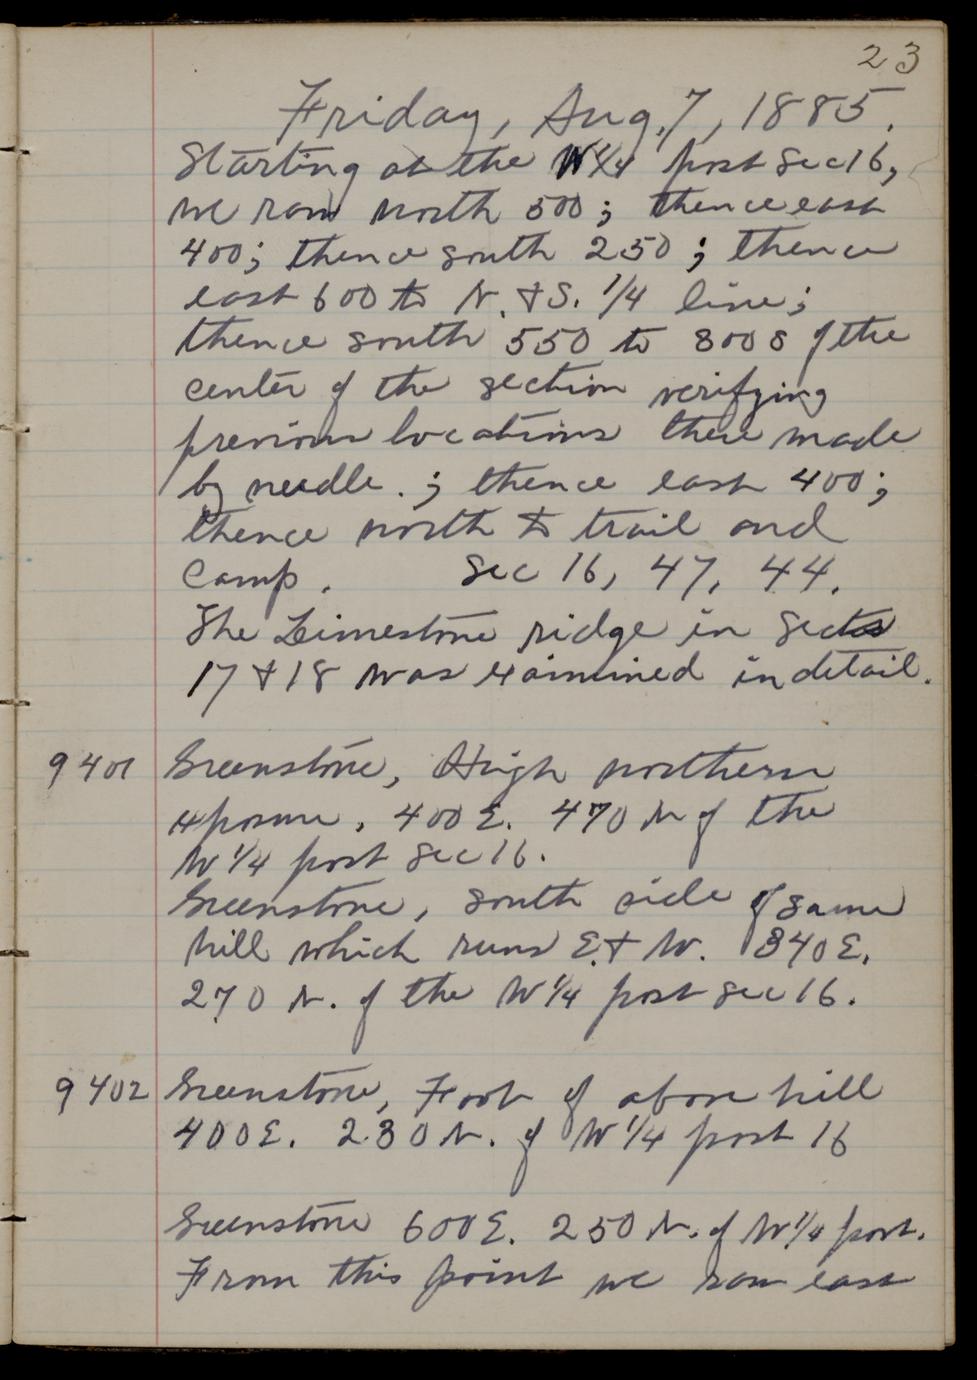 23
Friday, Aug. 7, 1885.
Starting at the W 1/4 post Sec 16,
we ran north 500; thence east
400; thence south 250; thence
east 600 to N. & S. 1/4 line;
thence south 550 to 300 S of the
center of the section verifying
previous locations there made
by needle.; thence east 400;
thence north to trail and
Camp. Sec 16, 47, 44.
The Limestone ridge in Sects
17 & 18 was examined in detail.
9401 Greenstone, High northern
exposure, 400 E. 470 N of the
W 1/4 post Sec 16.
Greenstone, south side of same
hill which runs E. & W. 340 E.
270 N. of the W 1/4 post Sec 16.
9402 Greenstone, Foot of above hill
400 E. 230 N. of W 1/4 post 16
Greenstone 600 E. 250 N. of W 1/4 post.
From this point we ran east